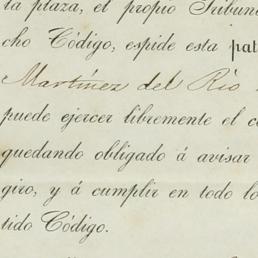 ta plaza, el propio Tribun
cho Código, espide esta pat
Martínez del Río
puede ejercer libremente el c
quedando obligado á avisar
giro, y á cumplir en todo lo
tido Código.